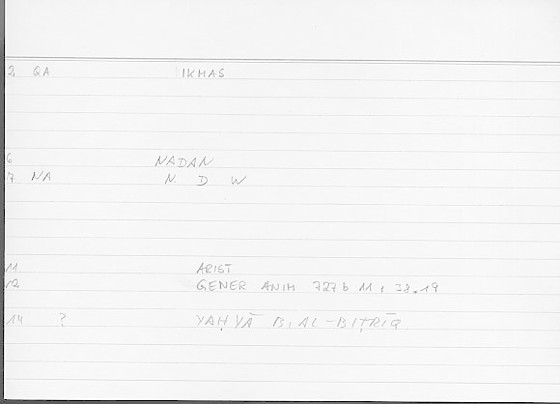 2 QA IKMAS
6 NADAN
7 NA N. D W
11 ARIST
12 GENER ANIM 727 b 11, 78.19
14 ? YAḤYĀ B. AL-BIṬRĪQ